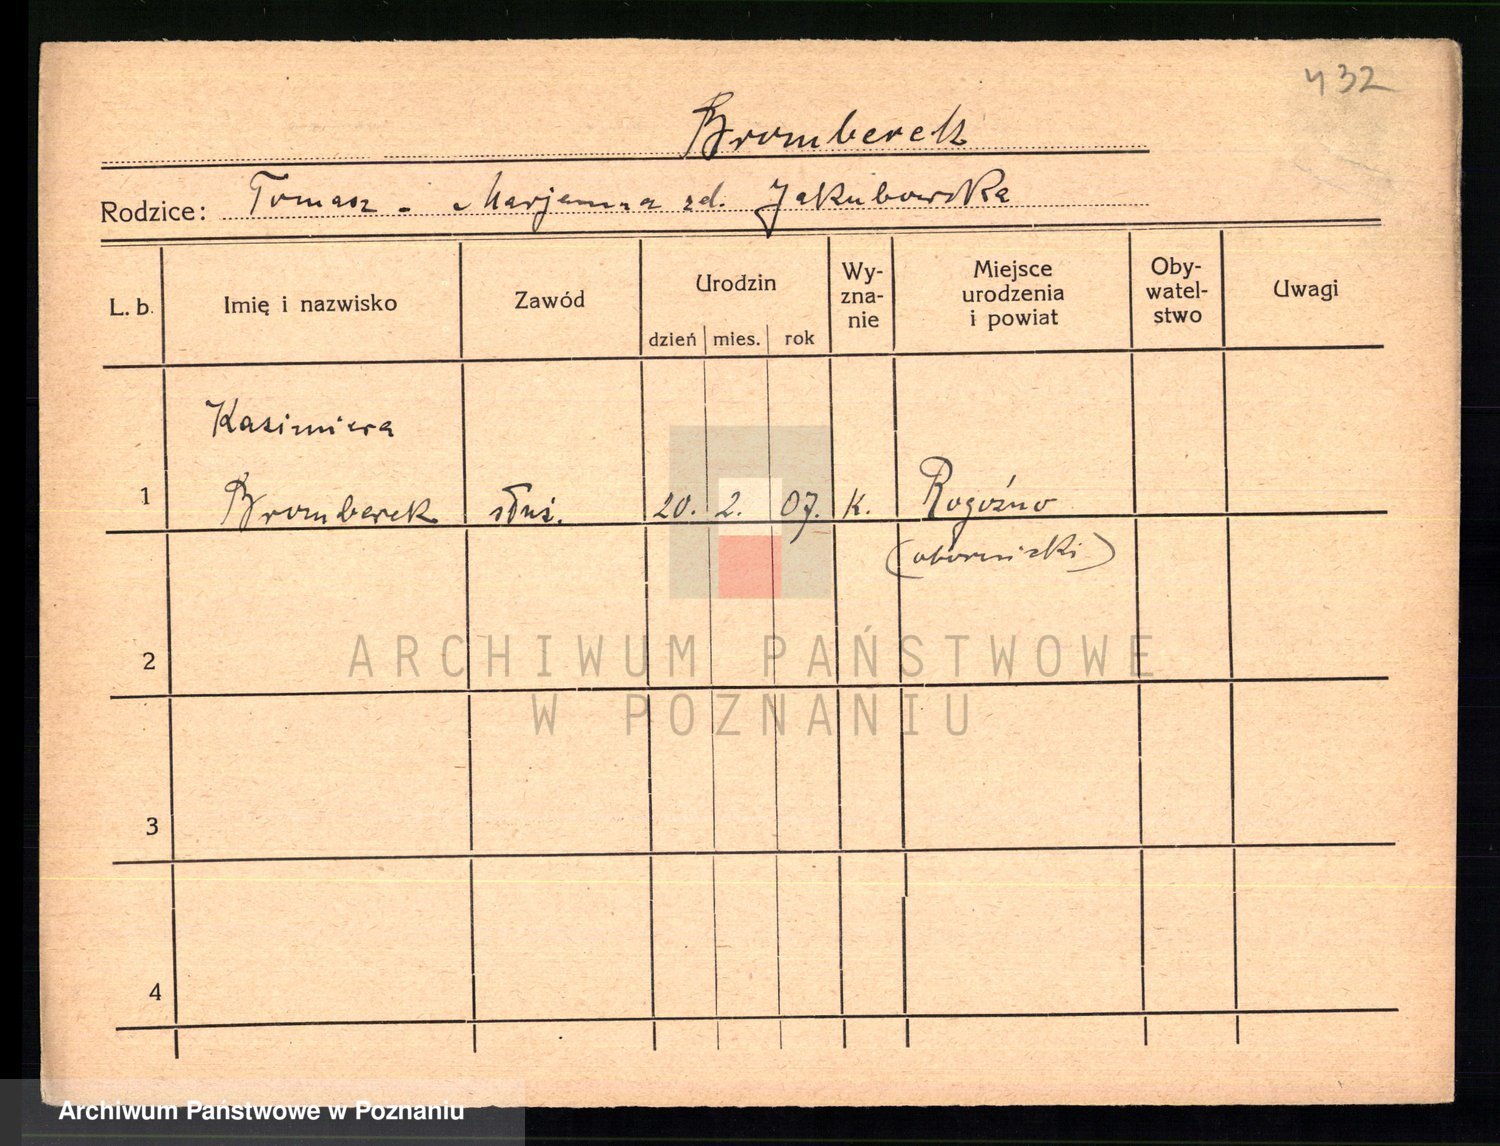 432
Bromberek
Rodzice: Tomasz - Marjanna zd. Jakubowska
L. b. Imię i nazwisko Zawód Urodzin dzień mies. rok Wy-zna-nie Miejsce urodzenia i powiat Oby-watel-stwo Uwagi
Kazimiera
1 Bromberek służ. 20. 2. 07. K. Rogoźno
(obornicki)
2
ARCHIWUM PAŃSTWOWE
W POZNANIU
3
4
Archiwum Państwowe w Poznaniu